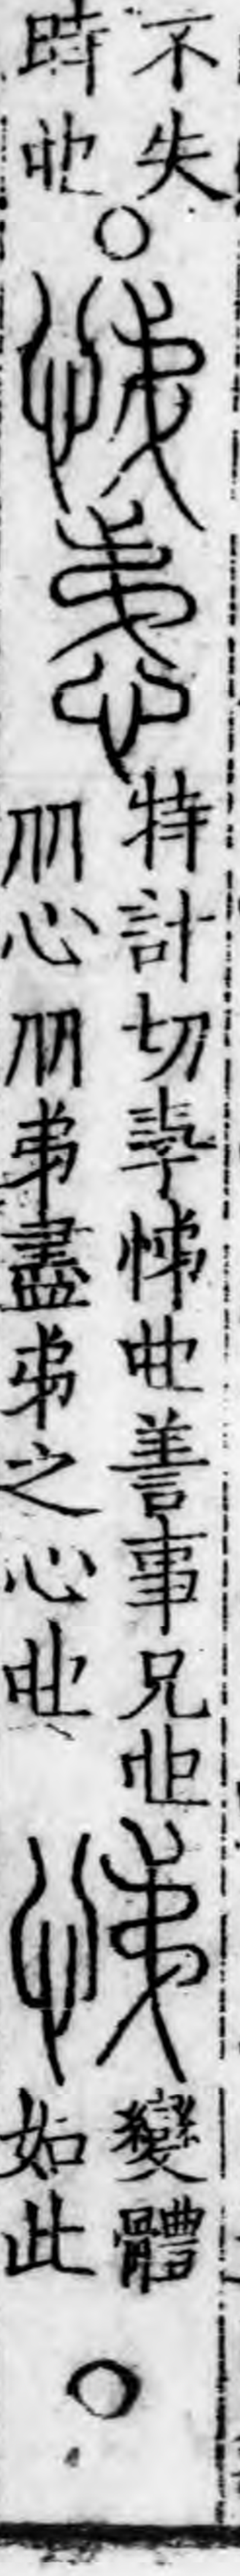 不失
時也○
悌
悌
特計切孝悌也善事兄也
从心从弟盡弟之心也
悌
變體
如此
○